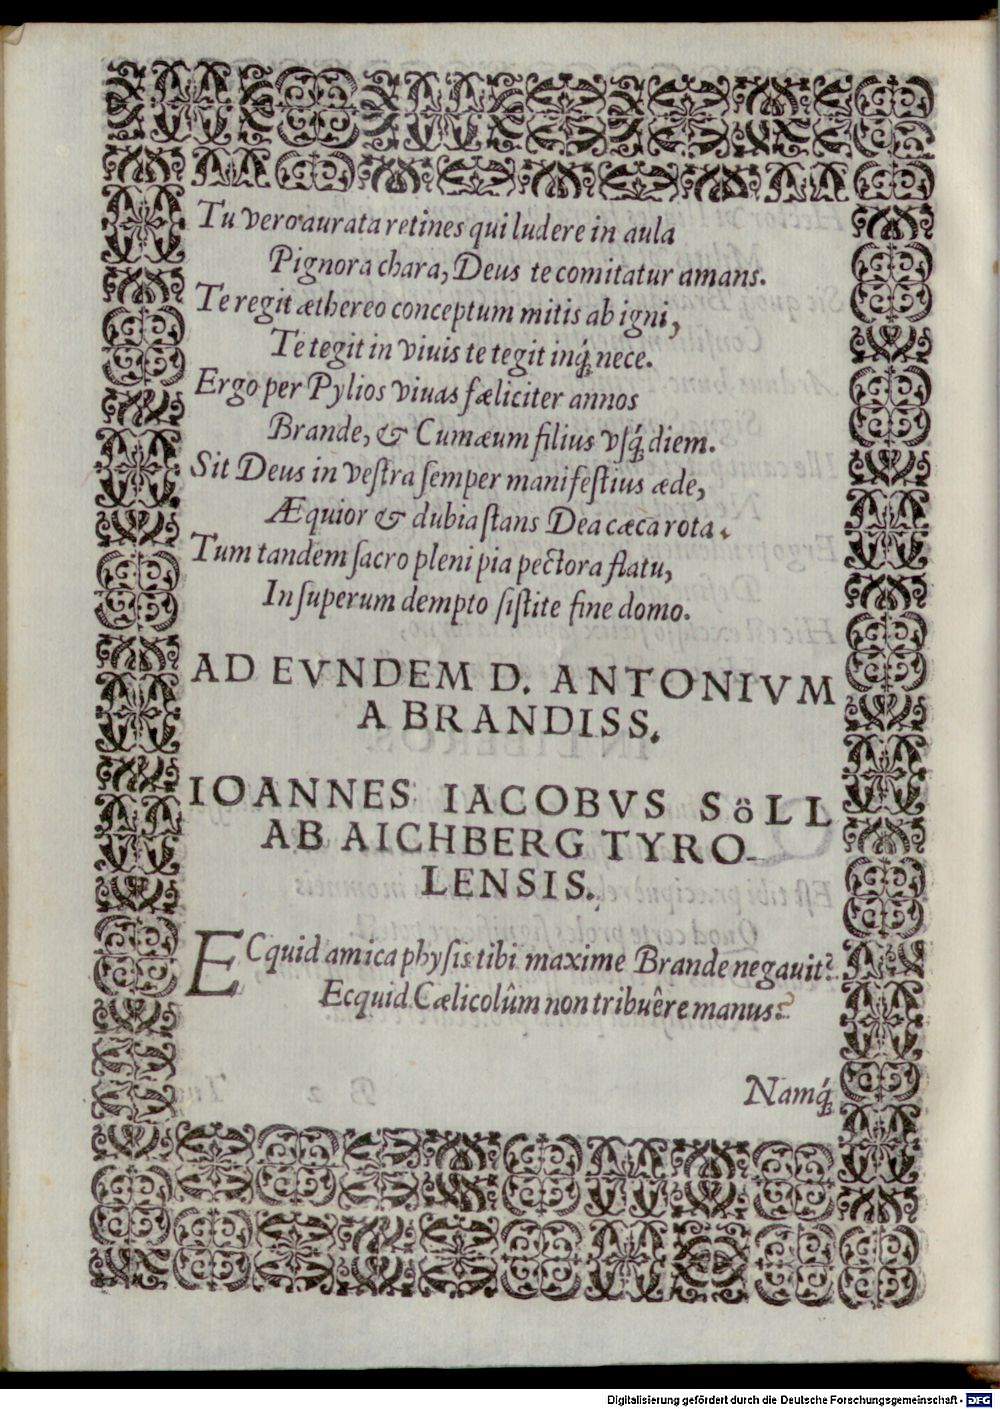 Tu vero aurata retines qui ludere in aula
Pignora chara, Deus te comitatur amans.
Te regit æthereo conceptum mitis ab igni,
Te tegit in viuis te tegit inq́; nece.
Ergo per Pylios viuas fæliciter annos
Brande, & Cumæum filius vſq́; diem.
Sit Deus in veſtra ſemper manifeſtius æde,
Æquior & dubia ſtans Dea cæca rota.
Tum tandem ſacro pleni pia pectora flatu,
In ſuperum dempto ſiſtite fine domo.
AD EVNDEM D. ANTONIVM
A BRANDISS.
IOANNES IACOBVS SöLL
AB AICHBERG TYRO-
LENSIS.
ECquid amica phyſis tibi maxime Brande negauit?
Ecquid Cælicolûm non tribuêre manus?
Namq́;
Digitalisierung gefördert durch die Deutsche Forschungsgemeinschaft - DFG